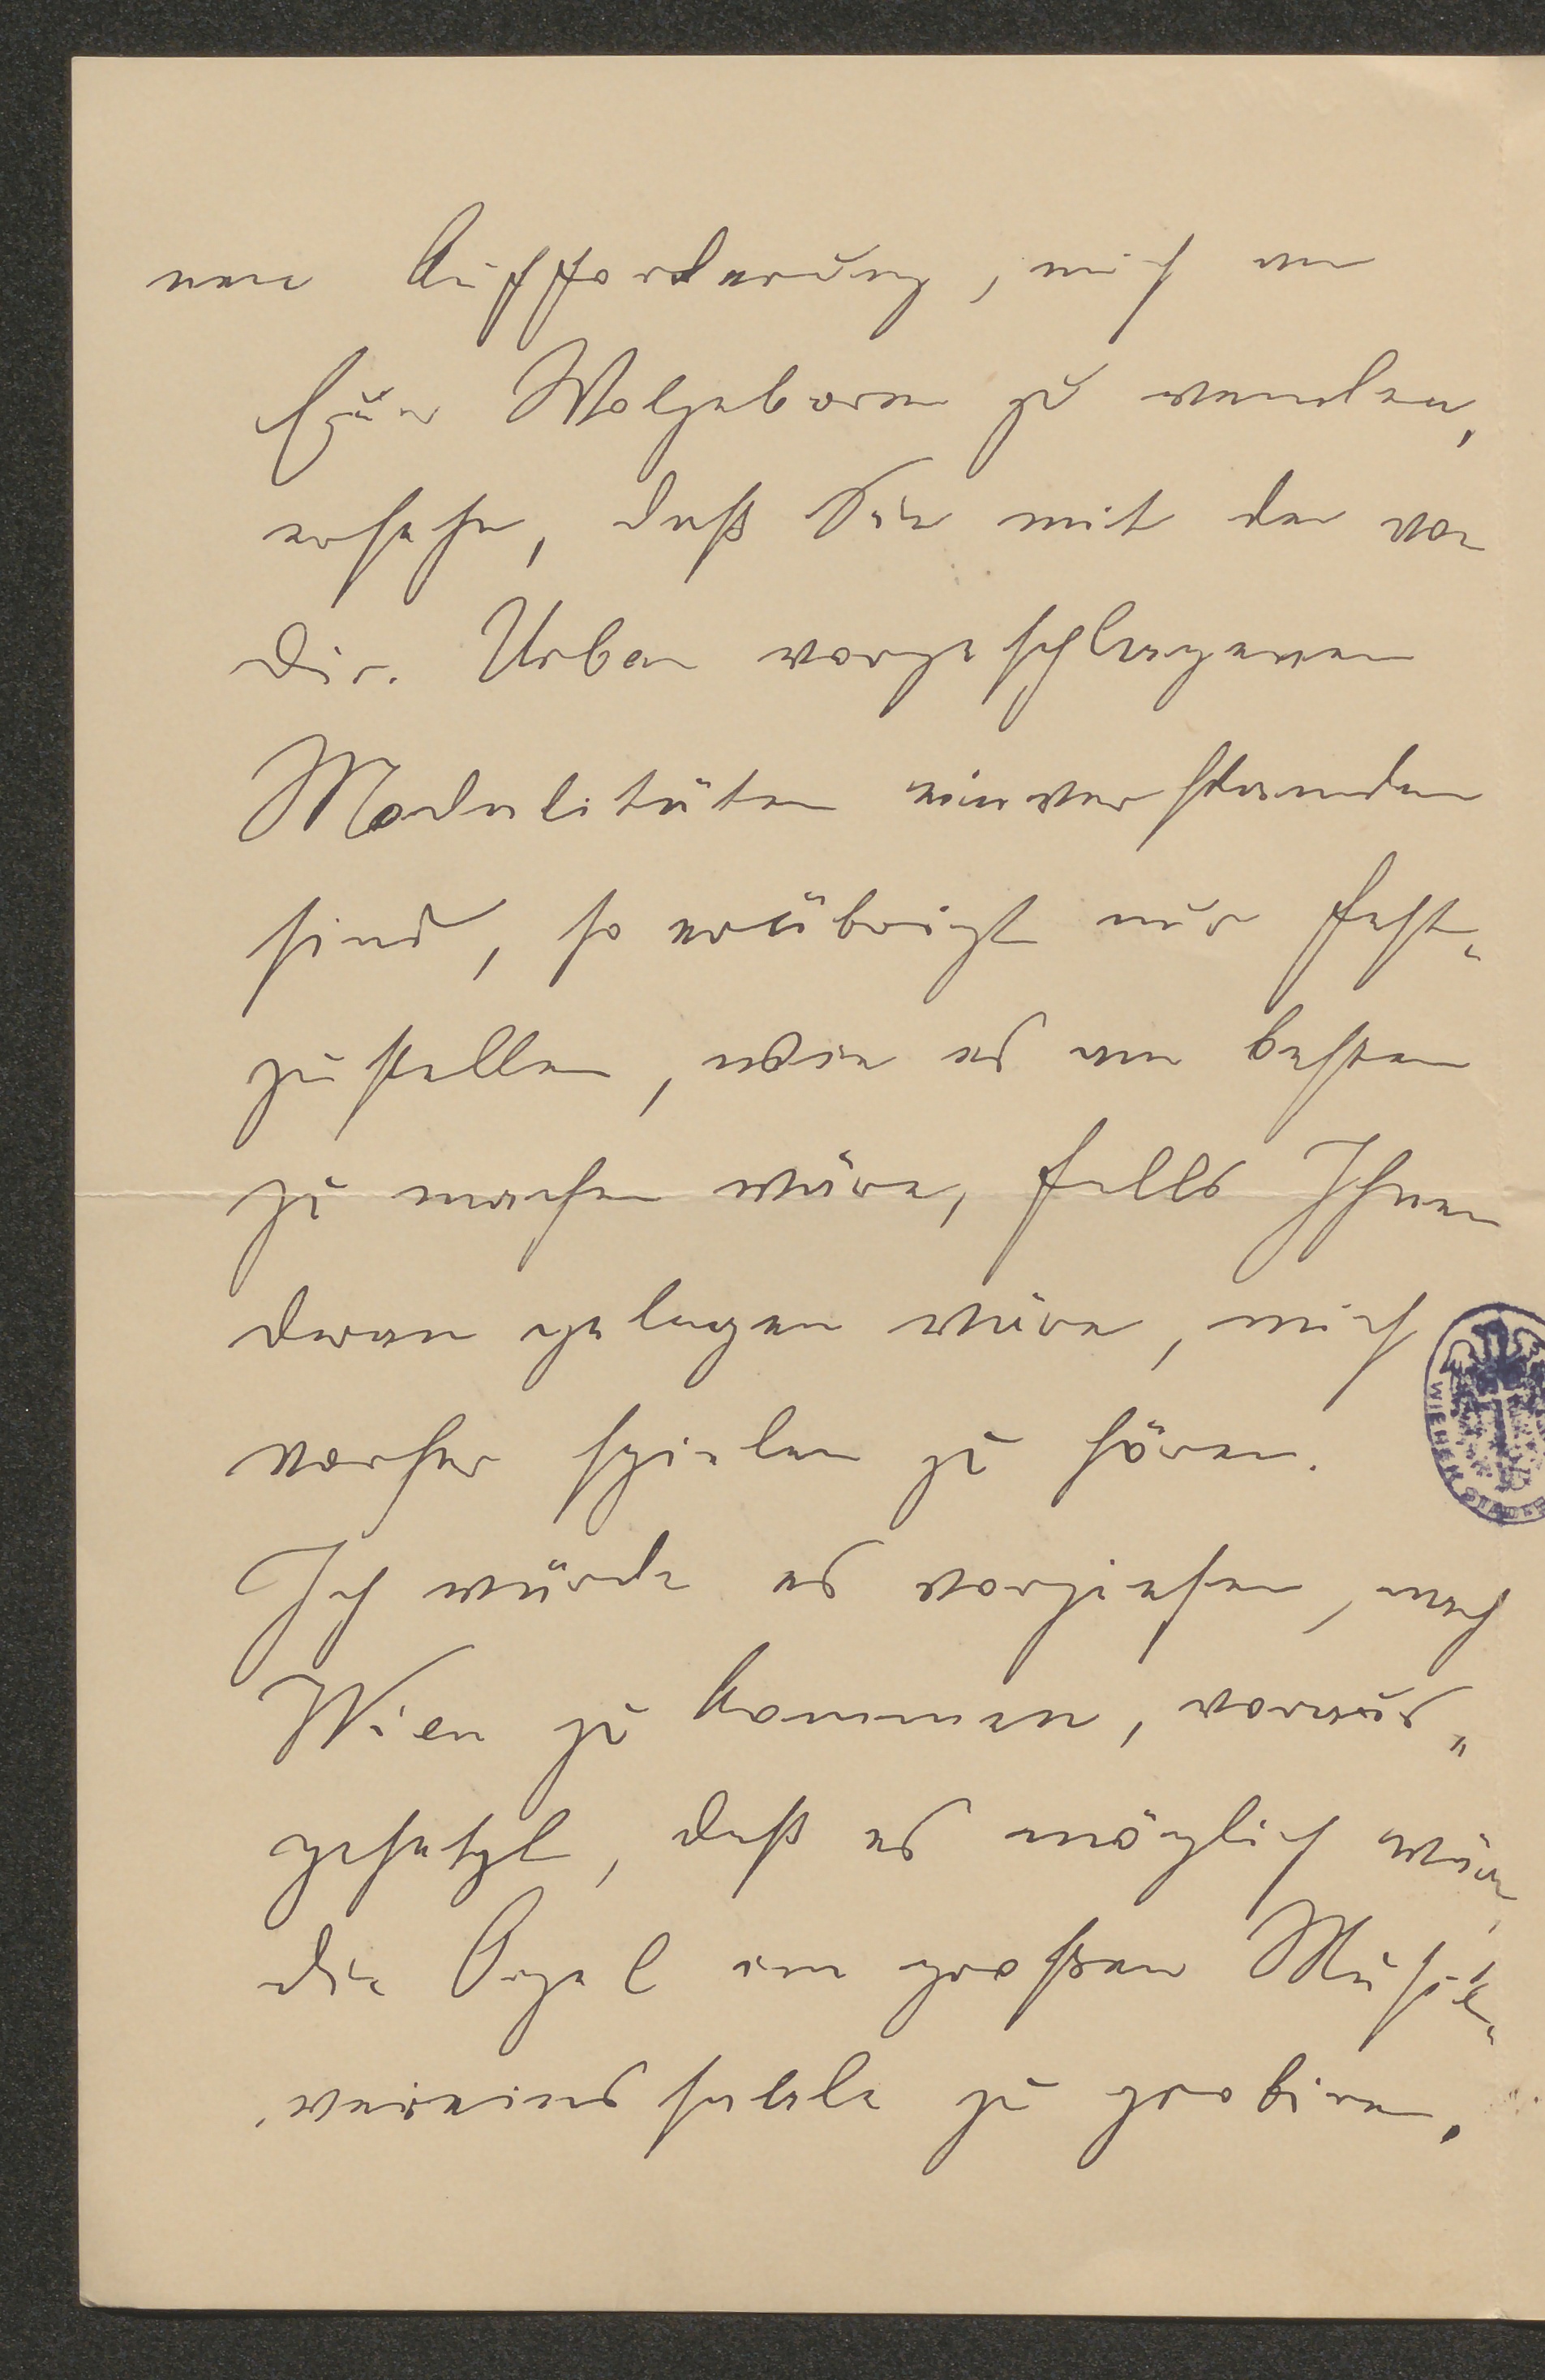 nen Aufforderung, mich an
Euer Wolgeboren zu wenden,
ersehe, daß Sie mit den von
Dir. Urban vorgeschlagenen
Modalitäten einverstanden
sind, so erübrigt nur fest-
zustellen, wie es am besten
zu machen wäre, falls Ihnen
daran gelegen wäre, mich
vorher spielen zu hören.
Ich würde es vorziehen, nach
Wien zu kommen, voraus-
gesetzt, daß es möglich wäre,
die Orgel im großen Musik-
vereinssaale zu probiren.
WIENER STADT